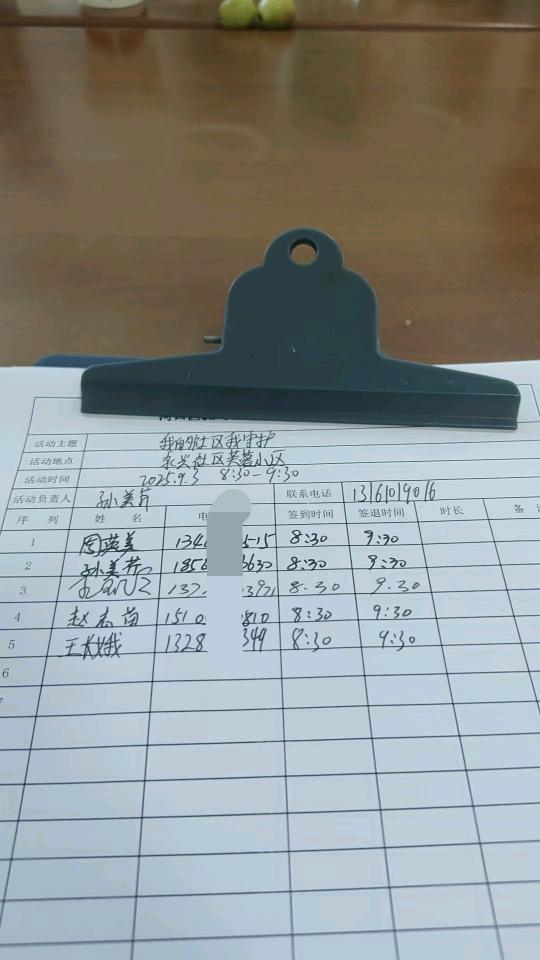 活动主题 我的社区我守护
活动地点 永兴社区芙蓉小区
活动时间 2025.9.3 8:30-9:30
活动负责人 孙美芹 联系电话 13161019016
序 列 姓 名 电 签到时间 签退时间 时长 备
1 周英美 134 515 8:30 9:30
2 孙美芹 1856 3630 8:30 9:30
3 137 397 8:30 9:30
4 赵志苗 1510 810 8:30 9:30
5 王 娥 1328 349 8:30 9:30
6
7